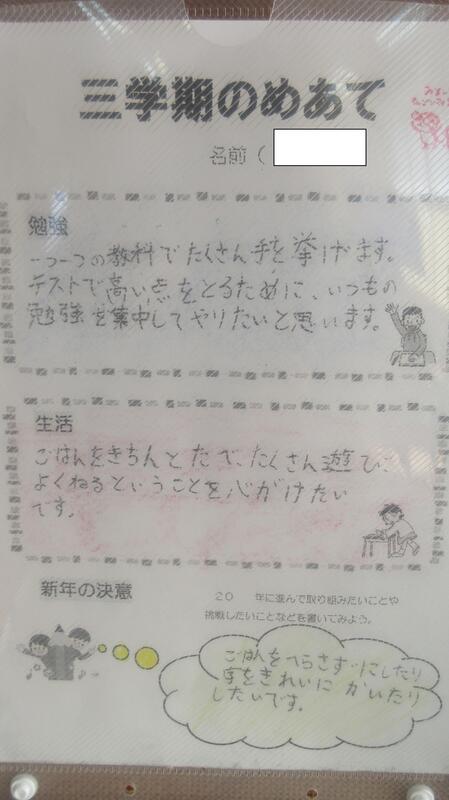 三学期のめあて
名前（
勉強
一つ一つの教科でたくさん手を挙げます。
テストで高い点をとるために、いつもの
勉強を集中してやりたいと思います。
生活
ごはんをきちんとたべ、たくさん遊び、
よくねるということを心がけたい
です。
新年の決意
20　年に進んで取り組みたいことや
挑戦したいことなどを書いてみよう。
ごはんをへらさずにしたり
字をきれいにかいたり
したいです。